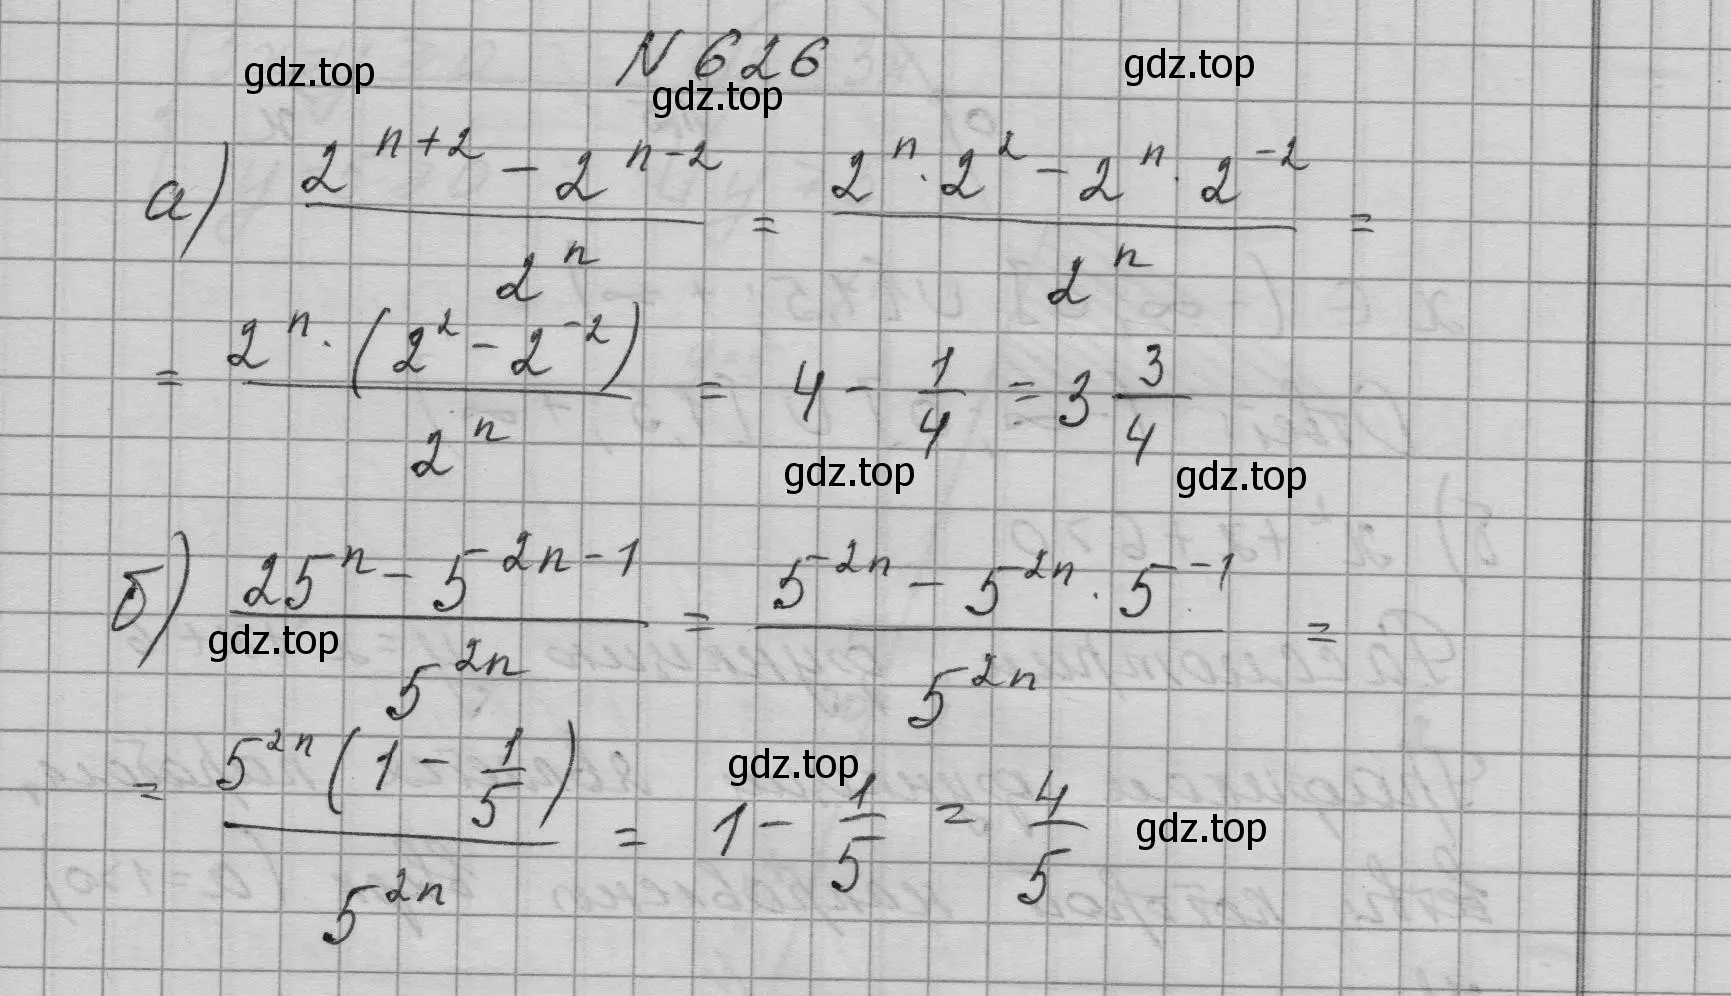 N 626
gdz.top gdz.top gdz.top
а) (2^(n+2) - 2^(n-2)) / 2^n = (2^n · 2^2 - 2^n · 2^(-2)) / 2^n =
= (2^n · (2^2 - 2^(-2))) / 2^n = 4 - 1/4 = 3 3/4
gdz.top gdz.top
б) (25^n - 5^(2n-1)) / 5^(2n) = (5^(2n) - 5^(2n) · 5^(-1)) / 5^(2n) =
gdz.top
= (5^(2n) (1 - 1/5)) / 5^(2n) = 1 - 1/5 = 4/5
gdz.top gdz.top